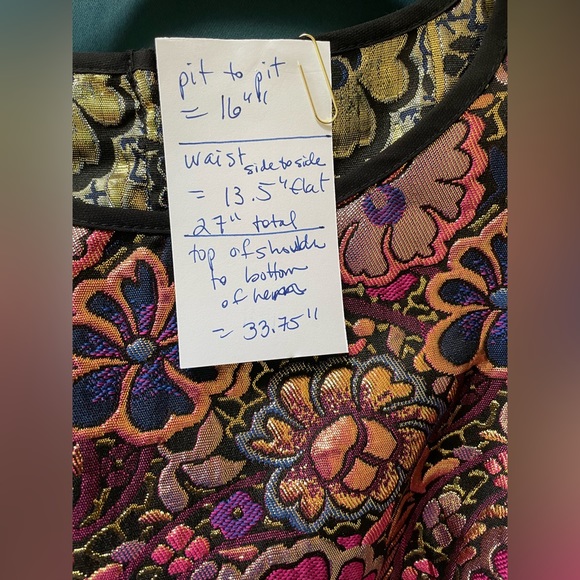 pit to pit
= 16"
waist side to side
= 13.5" flat
27" total
top of shoulder
to bottom
of hem
= 33.75"